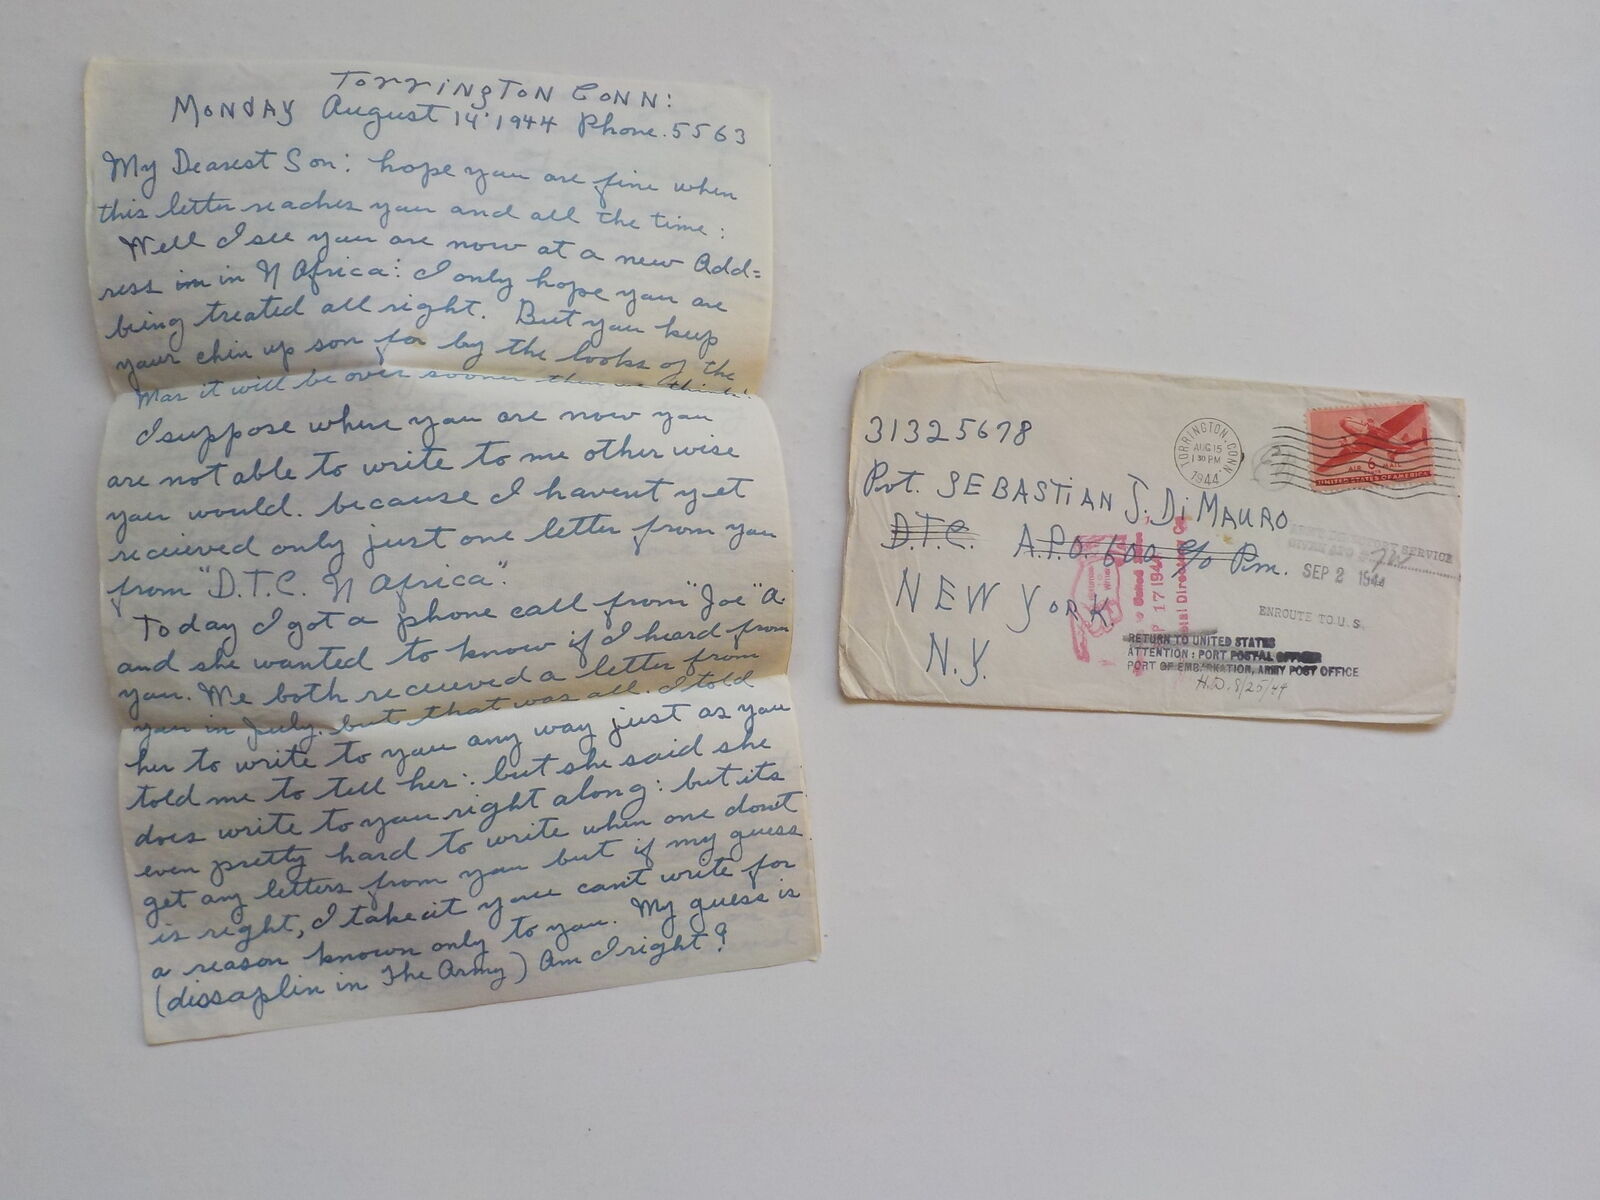 Torrington Conn:
Monday August 14' 1944 Phone. 5563
My Dearest Son: hope you are fine when
this letter reaches you and all the time:
Well I see you are now at a new Add=
ress im in N Africa: I only hope you are
being treated all right. But you keep
your chin up son for by the looks of the
War it will be over sooner than we think:
I suppose where you are now you
are not able to write to me other wise
you would. because I havent yet
recieved only just one letter from you
from "D.T.C. N Africa".
Today I got a phone call from "Joe" A.
and she wanted to know if I heard from
you. We both recieved a letter from
you in July. but that was all. I told
her to write to you any way just as you
told me to tell her: but she said she
does write to you right along: but its
even pretty hard to write when one dont
get any letters from you but if my guess
is right, I take it you cant write for
a reason known only to you. My guess is
(dissaplin in The Army) Am I right?
31325678
Pvt. SEBASTIAN J. Di MAURO
D.T.C. A.P.O. 600 c/o P.m.
NEW YORK.
N.Y.
TORRINGTON, CONN.
AUG 15
1 30 PM
1944
AIR MAIL
6
CENTS
UNITED STATES OF AMERICA
DIRECTORY SERVICE
GIVEN APO
SEP 2 1944
ENROUTE TO U.S.
RETURN TO UNITED STATES
ATTENTION: PORT POSTAL OFFICER
PORT OF EMBARKATION, ARMY POST OFFICE
H.D. 8/25/44
17 1944